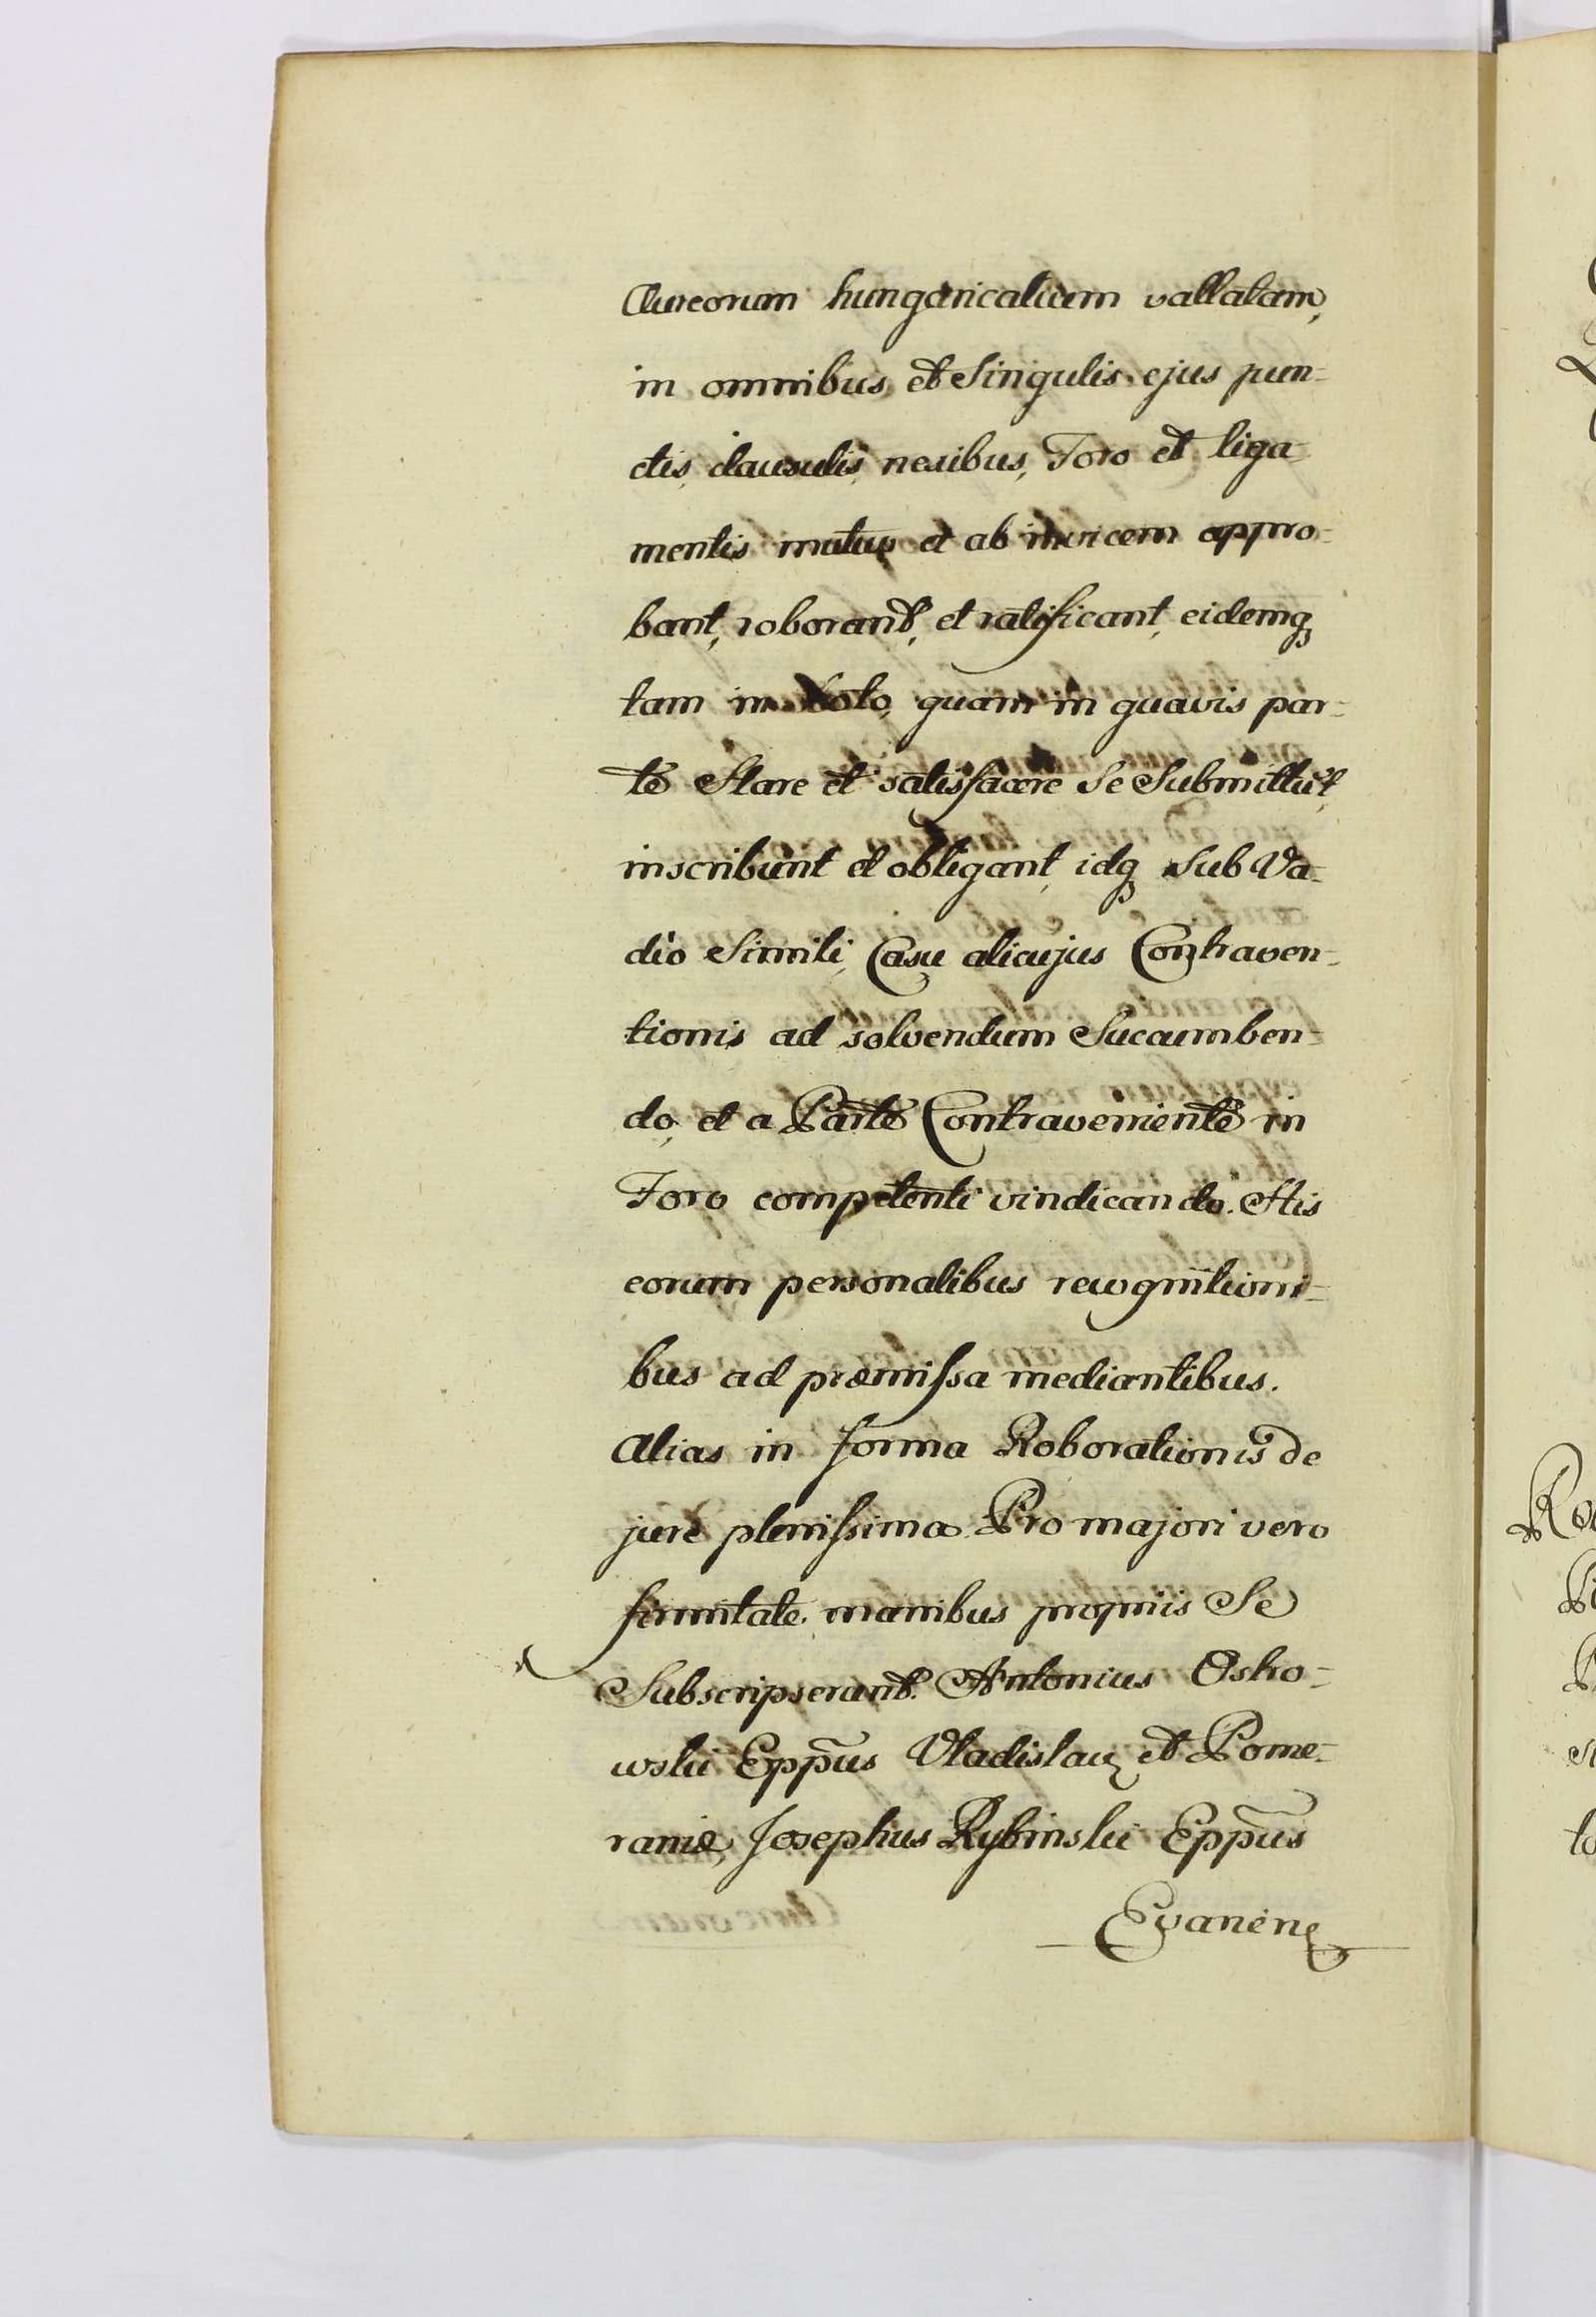 Aureorum hungaricalium vallatam,
in omnibus et Singulis ejus pun-
ctis, clausulis, nexibus, Foro et liga-
mentis mutuo et ab invicem appro-
bant, roborant, et ratificant, eidemq3
tam in Toto, quam in quavis par-
te Stare et satisfacere Se Submittūt,
inscribunt et obligant, idq3 sub Va-
dio Simili, Casu alicujus Contraven-
tionis ad solvendum Succumben-
do, et a Parte Contraveniente in
Foro competenti vindicando. His
eorum personalibus recognitioni-
bus ad præmissa mediantibus.
Alias in forma Roborationis de
jure plenissima. Pro majori vero
firmitate. manibus propriis Se
Subscripserant. Antonius Ostro-
wski Epp̄us Vladislav et Pome-
raniæ, Josephus Rybinski Epp̄us
Evanen